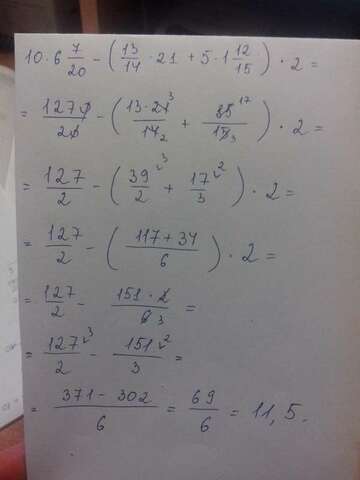 10 · 6 7/20 − ( 13/14 · 21 + 5 · 1 12/15 ) · 2 =
= 1270/20 − ( 13 · 21 3/14 2 + 85 17/15 3 ) · 2 =
= 127/2 − ( 39 3/2 + 17 2/3 ) · 2 =
= 127/2 − ( 117 + 34/6 ) · 2 =
= 127/2 − 151 · 2/6 3 =
= 127 3/2 − 151 2/3 =
= 371 − 302/6 = 69/6 = 11,5.